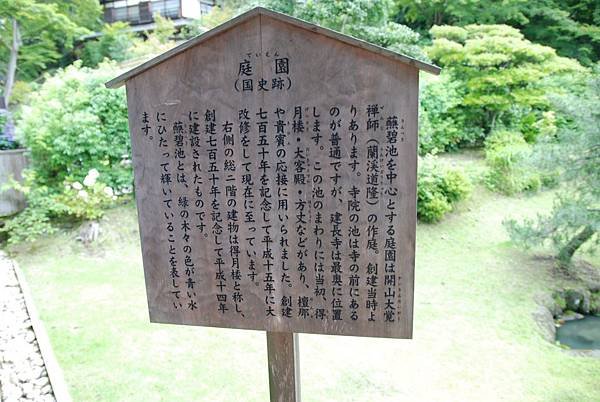 ていえん
庭園
(国史跡)
蘸碧池を中心とする庭園は開山大覚
禅師(蘭渓道隆)の作庭。創建当時よ
りあります。寺院の池は寺の前にある
のが普通ですが、建長寺は最奥に位置
します。この池のまわりには当初、得
月楼・大客殿・方丈などがあり、檀那
や貴賓の応接に用いられました。創建
七百五十年を記念して平成十五年に大
改修をして現在に至っています。
右側の総二階の建物は得月楼と称し、
創建七百五十年を記念して平成十四年
に建設されたものです。
蘸碧池とは、緑の木々の色が青い水
にひたって輝いていることを表してい
ます。